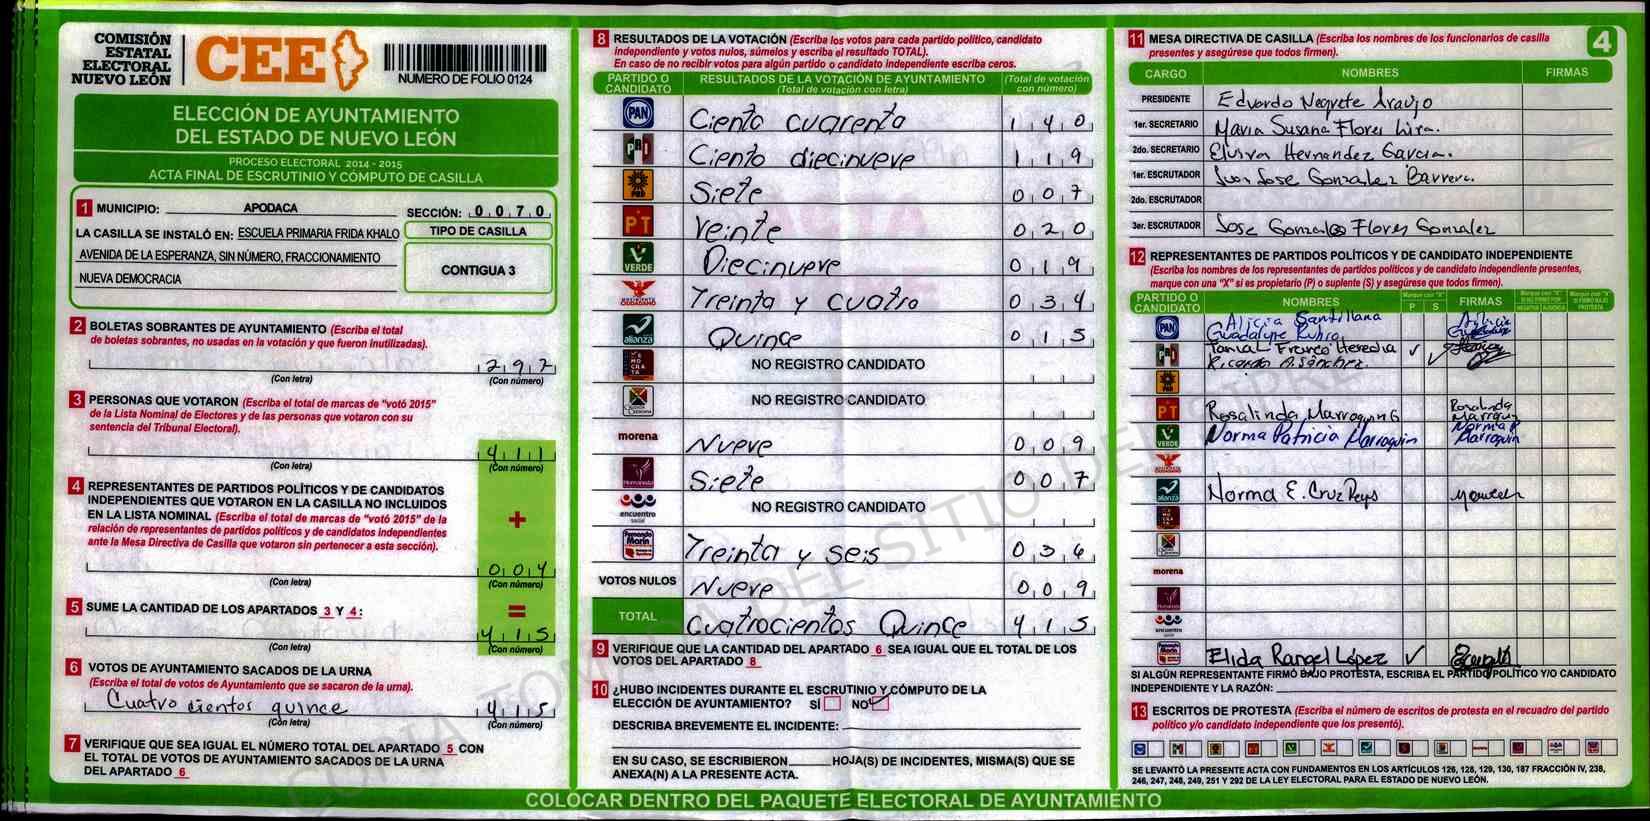 COMISIÓN
ESTATAL
ELECTORAL
NUEVO LEÓN
CEE
NUMERO DE FOLIO 0124
ELECCIÓN DE AYUNTAMIENTO
DEL ESTADO DE NUEVO LEÓN
PROCESO ELECTORAL 2014 - 2015
ACTA FINAL DE ESCRUTINIO Y CÓMPUTO DE CASILLA
1 MUNICIPIO: APODACA SECCIÓN: 0 0 7 0
LA CASILLA SE INSTALÓ EN: ESCUELA PRIMARIA FRIDA KHALO
AVENIDA DE LA ESPERANZA, SIN NÚMERO, FRACCIONAMIENTO
NUEVA DEMOCRACIA
TIPO DE CASILLA
CONTIGUA 3
2 BOLETAS SOBRANTES DE AYUNTAMIENTO (Escriba el total
de boletas sobrantes, no usadas en la votación y que fueron inutilizadas).
2 9 7
(Con letra) (Con número)
3 PERSONAS QUE VOTARON (Escriba el total de marcas de "votó 2015"
de la Lista Nominal de Electores y de las personas que votaron con su
sentencia del Tribunal Electoral).
4 1 1
(Con letra) (Con número)
4 REPRESENTANTES DE PARTIDOS POLÍTICOS Y DE CANDIDATOS
INDEPENDIENTES QUE VOTARON EN LA CASILLA NO INCLUIDOS
EN LA LISTA NOMINAL (Escriba el total de marcas de "votó 2015" de la
relación de representantes de partidos políticos y de candidatos independientes
ante la Mesa Directiva de Casilla que votaron sin pertenecer a esta sección).
+
0 0 4
(Con letra) (Con número)
5 SUME LA CANTIDAD DE LOS APARTADOS 3 Y 4:
=
4 1 5
(Con letra) (Con número)
6 VOTOS DE AYUNTAMIENTO SACADOS DE LA URNA
(Escriba el total de votos de Ayuntamiento que se sacaron de la urna).
Cuatro cientos quince 4 1 5
(Con letra) (Con número)
7 VERIFIQUE QUE SEA IGUAL EL NÚMERO TOTAL DEL APARTADO 5 CON
EL TOTAL DE VOTOS DE AYUNTAMIENTO SACADOS DE LA URNA
DEL APARTADO 6
8 RESULTADOS DE LA VOTACIÓN (Escriba los votos para cada partido político, candidato
independiente y votos nulos, súmelos y escriba el resultado TOTAL).
En caso de no recibir votos para algún partido o candidato independiente escriba ceros.
PARTIDO O CANDIDATO RESULTADOS DE LA VOTACIÓN DE AYUNTAMIENTO (Total de votación con letra) (Total de votación con número)
PAN Ciento cuarenta 1 4 0
PRI Ciento diecinueve 1 1 9
PRD Siete 0 0 7
PT Veinte 0 2 0
VERDE Diecinueve 0 1 9
Treinta y cuatro 0 3 4
alianza Quince 0 1 5
NO REGISTRO CANDIDATO
NO REGISTRO CANDIDATO
morena Nueve 0 0 9
Humanista Siete 0 0 7
encuentro social NO REGISTRO CANDIDATO
Fernando Marín Treinta y seis 0 3 6
VOTOS NULOS Nueve 0 0 9
TOTAL Cuatrocientos Quince 4 1 5
9 VERIFIQUE QUE LA CANTIDAD DEL APARTADO 6 SEA IGUAL QUE EL TOTAL DE LOS
VOTOS DEL APARTADO 8
10 ¿HUBO INCIDENTES DURANTE EL ESCRUTINIO Y CÓMPUTO DE LA
ELECCIÓN DE AYUNTAMIENTO? SÍ NO
DESCRIBA BREVEMENTE EL INCIDENTE:
EN SU CASO, SE ESCRIBIERON HOJA(S) DE INCIDENTES, MISMA(S) QUE SE
ANEXA(N) A LA PRESENTE ACTA.
4
11 MESA DIRECTIVA DE CASILLA (Escriba los nombres de los funcionarios de casilla
presentes y asegúrese que todos firmen).
CARGO NOMBRES FIRMAS
PRESIDENTE Eduardo Negrete Araujo
1er. SECRETARIO Maria Susana Flores Lira.
2do. SECRETARIO Elvira Hernandez Garcia.
1er. ESCRUTADOR Juan Jose Gonzalez Barrera.
2do. ESCRUTADOR
3er. ESCRUTADOR Jose Gonzalo Flores Gonzalez
12 REPRESENTANTES DE PARTIDOS POLÍTICOS Y DE CANDIDATO INDEPENDIENTE
(Escriba los nombres de los representantes de partidos políticos y de candidato independiente presentes,
marque con una "X" si es propietario (P) o suplente (S) y asegúrese que todos firmen).
PARTIDO O CANDIDATO NOMBRES Marque con "X" P S FIRMAS
PAN Alicia Santillana
Guadalupe Rubio
PRI Tania L Franco Heredia
Ricardo A. Sánchez.
PRD
PT Rosalinda Marroquin G Rosalinda
VERDE Norma Patricia Marroquin Norma P Marroquin
alianza Norma E. Cruz Reys
morena
encuentro social
Elida Rangel López
SI ALGÚN REPRESENTANTE FIRMÓ BAJO PROTESTA, ESCRIBA EL PARTIDO POLÍTICO Y/O CANDIDATO
INDEPENDIENTE Y LA RAZÓN:
13 ESCRITOS DE PROTESTA (Escriba el número de escritos de protesta en el recuadro del partido
político y/o candidato independiente que los presentó).
SE LEVANTÓ LA PRESENTE ACTA CON FUNDAMENTOS EN LOS ARTÍCULOS 126, 128, 129, 130, 187 FRACCIÓN IV, 238,
246, 247, 248, 249, 251 Y 292 DE LA LEY ELECTORAL PARA EL ESTADO DE NUEVO LEÓN.
COLOCAR DENTRO DEL PAQUETE ELECTORAL DE AYUNTAMIENTO
COPIA TOMADA DEL SITIO DEL SIPRE